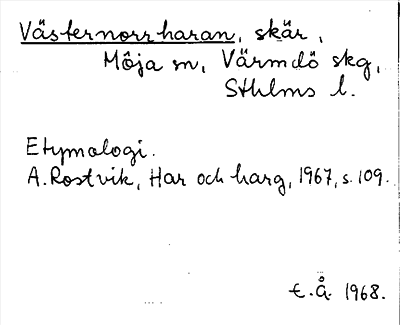 Västernorrharan, skär,
Möja sn, Värmdö skg,
Sthlms l.
Etymologi.
A. Rostvik, Har och harg, 1967, s. 109.
E.Å. 1968.